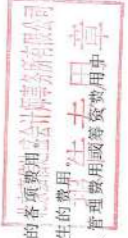 的各项费用。
生的费用。
管理费用或筹资费用中
会计师事务所有限公司
专用章